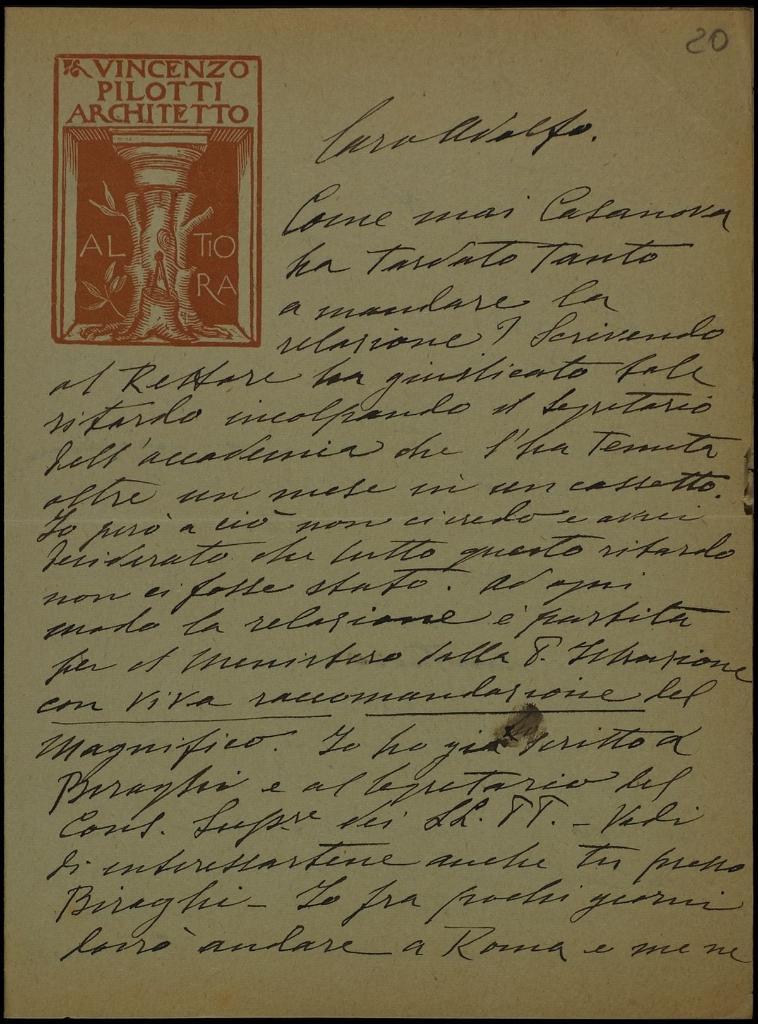 20
VINCENZO
PILOTTI
ARCHITETTO
AL TIO
RA
Caro Adolfo.
Come mai Casanova
ha tardato tanto
a mandare la
relazione? Scrivendo
al Rettore ha giustificato tale
ritardo incolpando il Segretario
dell'accademia che l'ha tenuta
oltre un mese in un cassetto.
Io però a ciò non ci credo e avrei
desiderato che tutto questo ritardo
non ci fosse stato. Ad ogni
modo la relazione è partita
per il Ministero della P. Istruzione
con viva raccomandazione del
Magnifico. Io ho già scritto a
Biraghi e al Segretario del
Cons. Supre dei LL. PP. - Vedi
di interessartene anche tu presso
Biraghi - Io fra pochi giorni
dovrò andare a Roma e me ne